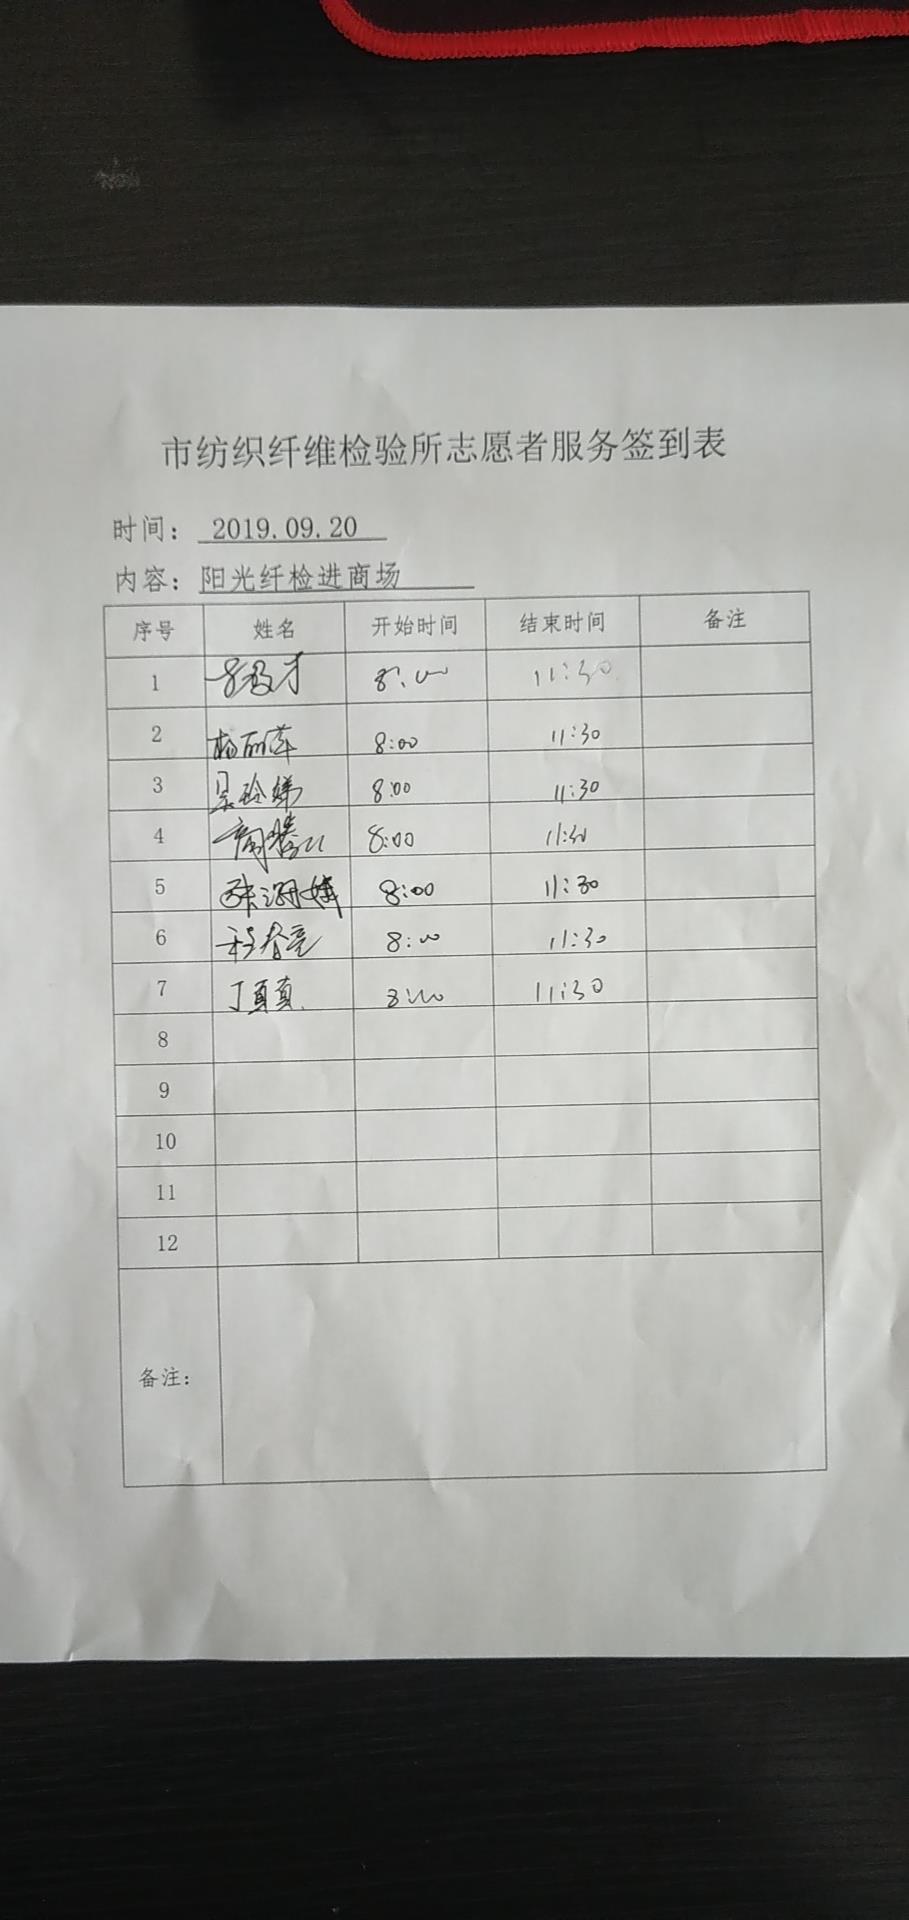 市纺织纤维检验所志愿者服务签到表
时间： 2019.09.20
内容：阳光纤检进商场
序号 姓名 开始时间 结束时间 备注
1 8:00 11:30
2 杨丽萍 8:00 11:30
3 8:00 11:30
4 8:00 11:30
5 8:00 11:30
6 程春亮 8:00 11:30
7 丁真真 8:00 11:30
8
9
10
11
12
备注：